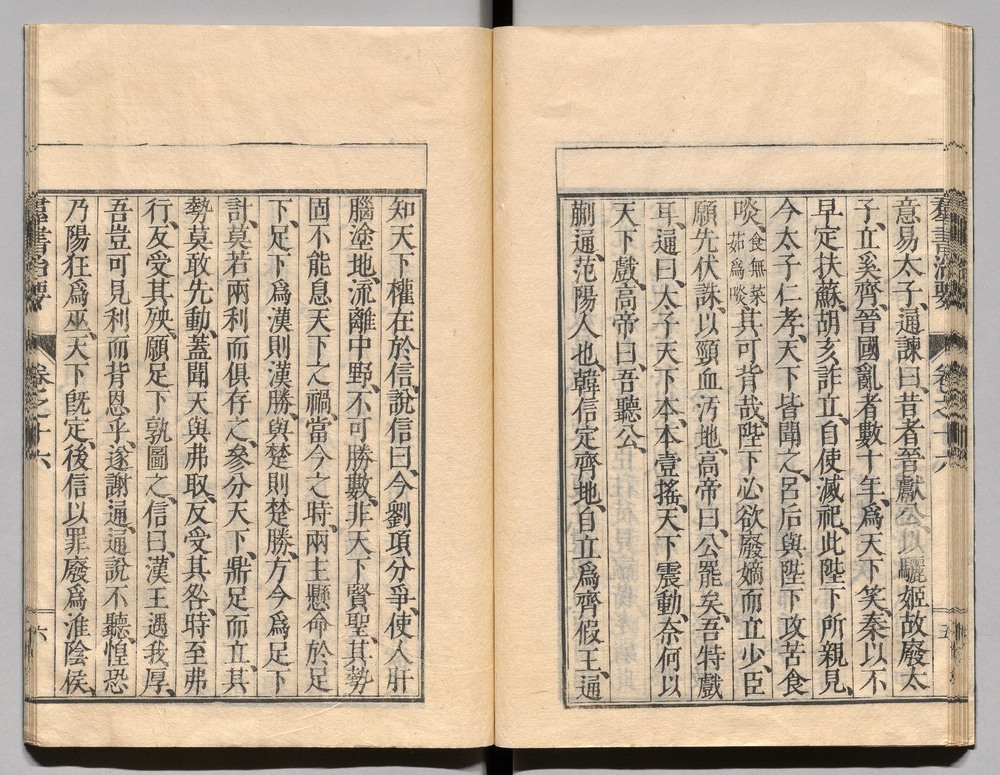 群書治要 卷之十六 五
意易太子、通諫曰、昔者晉獻公、以驪姬故廢太
子、立奚齊、晉國亂者數十年、爲天下笑、秦以不
早定扶蘇、胡亥詐立、自使滅祀、此陛下所親見、
今太子仁孝、天下皆聞之、呂后與陛下攻苦食
啖、食無菜茹爲啖其可背哉、陛下必欲廢嫡而立少、臣
願先伏誅、以頸血汚地、高帝曰、公罷矣、吾特戲
耳、通曰、太子天下本、本壹搖、天下震動、奈何以
天下戲、高帝曰、吾聽公、
蒯通、范陽人也、韓信定齊地、自立爲齊假王、通
知天下權在於信、說信曰、今劉項分爭、使人肝
腦塗地、流離中野、不可勝數、非天下賢聖、其勢
固不能息天下之禍、當今之時、兩主懸命於足
下、足下爲漢則漢勝、與楚則楚勝、方今爲足下
計、莫若兩利而俱存之、參分天下、鼎足而立、其
勢莫敢先動、蓋聞天與弗取、反受其咎、時至弗
行、反受其殃、願足下孰圖之、信曰、漢王遇我厚、
吾豈可見利而背恩乎、遂謝通、通說不聽、惶恐
乃陽狂爲巫、天下既定、後信以罪廢爲淮陰侯、
群書治要 卷之十六 六